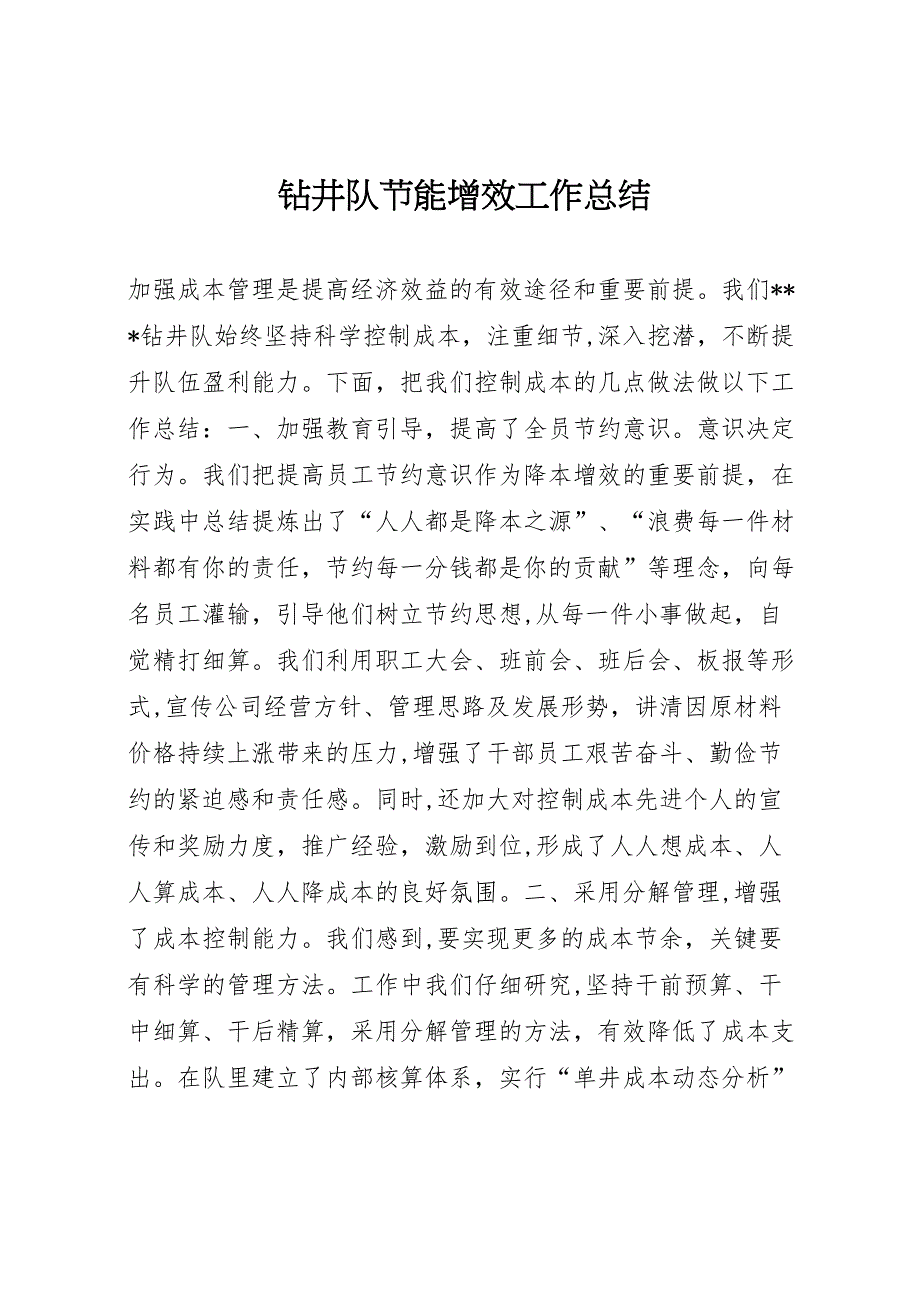 钻井队节能增效工作总结
加强成本管理是提高经济效益的有效途径和重要前提。我们**
*钻井队始终坚持科学控制成本，注重细节,深入挖潜，不断提
升队伍盈利能力。下面，把我们控制成本的几点做法做以下工
作总结：一、加强教育引导，提高了全员节约意识。意识决定
行为。我们把提高员工节约意识作为降本增效的重要前提，在
实践中总结提炼出了“人人都是降本之源”、“浪费每一件材
料都有你的责任，节约每一分钱都是你的贡献”等理念，向每
名员工灌输，引导他们树立节约思想,从每一件小事做起，自
觉精打细算。我们利用职工大会、班前会、班后会、板报等形
式,宣传公司经营方针、管理思路及发展形势，讲清因原材料
价格持续上涨带来的压力,增强了干部员工艰苦奋斗、勤俭节
约的紧迫感和责任感。同时,还加大对控制成本先进个人的宣
传和奖励力度，推广经验，激励到位,形成了人人想成本、人
人算成本、人人降成本的良好氛围。二、采用分解管理,增强
了成本控制能力。我们感到,要实现更多的成本节余，关键要
有科学的管理方法。工作中我们仔细研究,坚持干前预算、干
中细算、干后精算，采用分解管理的方法，有效降低了成本支
出。在队里建立了内部核算体系，实行“单井成本动态分析”